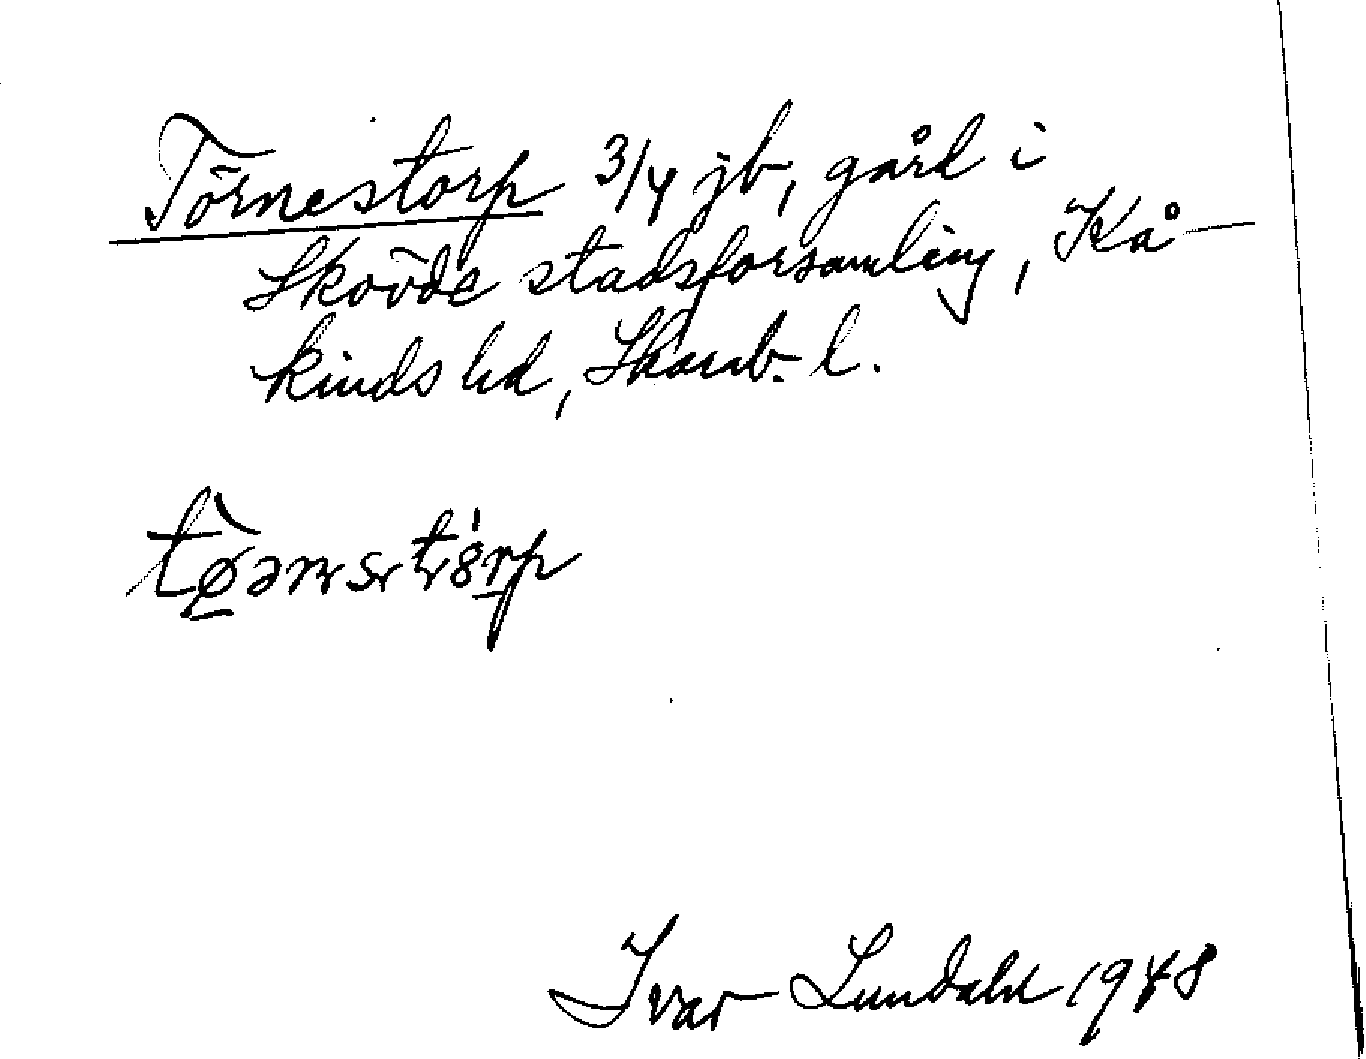 Törnestorp 3/4 jb, gård i
Skövde stadsförsamling, Kå-
kinds hd, Skarab. l.
Ivar Lundahl 1948